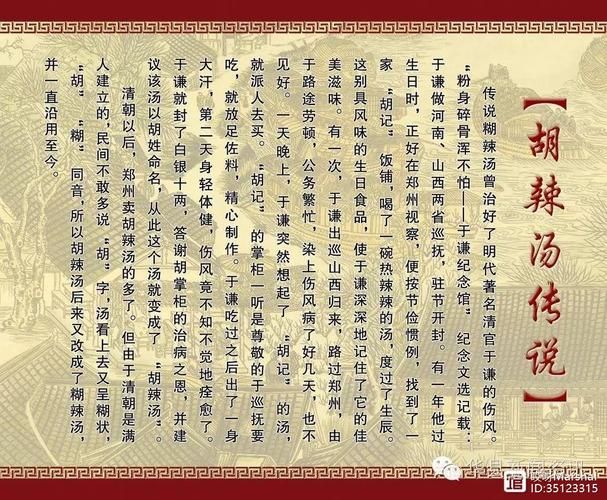 【胡辣汤传说】
传说糊辣汤曾治好了明代著名清官于谦的伤风。
“粉身碎骨浑不怕——于谦纪念馆”纪念文选记载：
于谦做河南、山西两省巡抚，驻节开封。有一年他过
生日时，正好在郑州视察，便按节俭惯例，找到了一
家“胡记”饭铺，喝了一碗热辣辣的汤，度过了生辰。
这别具风味的生日食品，使于谦深深地记住了它的佳
美滋味。有一次，于谦出巡山西归来，路过郑州，由
于路途劳顿，公务繁忙，染上伤风病了好几天，也不
见好。一天晚上，于谦突然想起了“胡记”的汤，
就派人去买。“胡记”的掌柜一听是尊敬的于巡抚要
吃，就放足佐料，精心制作。于谦吃过之后出了一身
大汗，第二天身轻体健，伤风竟不知不觉地痊愈了。
于谦就封了白银十两，答谢胡掌柜的治病之恩，并建
议该汤以胡姓命名，从此这个汤就变成了“胡辣汤”。
清朝以后，郑州卖胡辣汤的多了。但由于清朝是满
人建立的，民间不敢多说“胡”字，汤看上去又呈糊状，
“胡”“糊”同音，所以胡辣汤后来又改成了糊辣汤，
并一直沿用至今。
ID:35123315